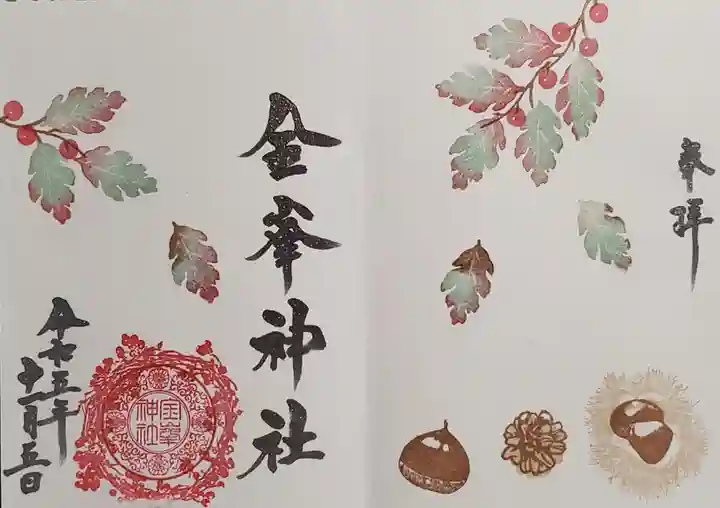 奉拝
金峯神社
金峯
神社
令和五年
十一月五日